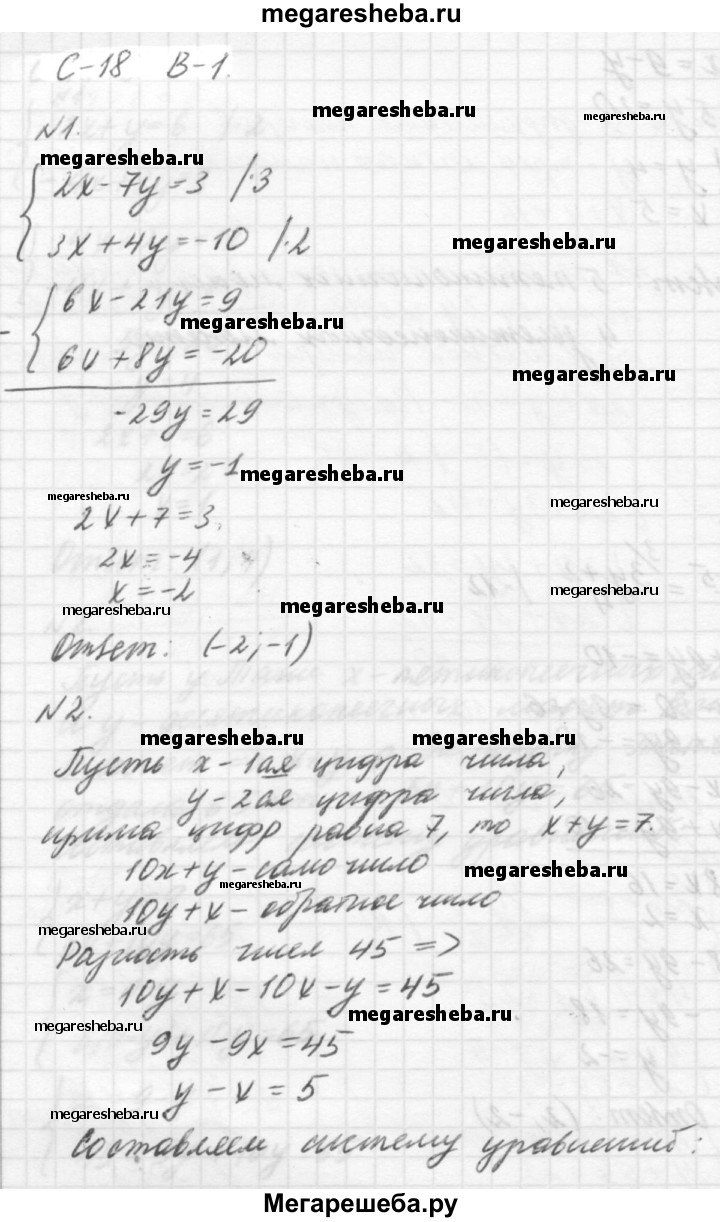 megaresheba.ru
С-18 В-1.
megaresheba.ru
megaresheba.ru
№1.
megaresheba.ru
2x-7y=3 /·3
3x+4y=-10 /·2
megaresheba.ru
6x-21y=9
megaresheba.ru
- 6x+8y=-20
megaresheba.ru
-29y=29
y=-1
megaresheba.ru
megaresheba.ru
megaresheba.ru
2x+7=3,
2x=-4
x=-2
megaresheba.ru
megaresheba.ru
megaresheba.ru
Ответ: (-2;-1)
№2.
megaresheba.ru
megaresheba.ru
Пусть x-1ая цифра числа,
y-2ая цифра числа,
сумма цифр равна 7, то x+y=7.
10x+y-само число
megaresheba.ru
10y+x-обратное число
megaresheba.ru
Разность чисел 45 =>
10y+x-10x-y=45
megaresheba.ru
megaresheba.ru
9y-9x=45
y-x=5
megaresheba.ru
Составляем систему уравнений:
Мегарешеба.ру